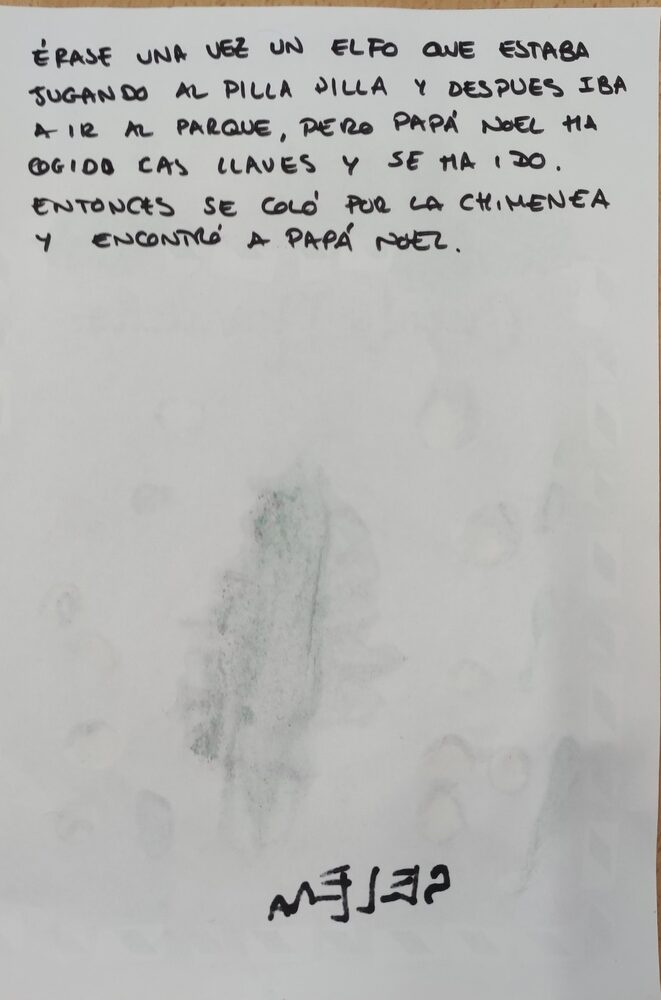 ÉRASE UNA VEZ UN ELFO QUE ESTABA
JUGANDO AL PILLA PILLA Y DESPUES IBA
A IR AL PARQUE, PERO PAPÁ NOEL HA
COGIDO LAS LLAVES Y SE HA IDO.
ENTONCES SE COLÓ POR LA CHIMENEA
Y ENCONTRÓ A PAPÁ NOEL.